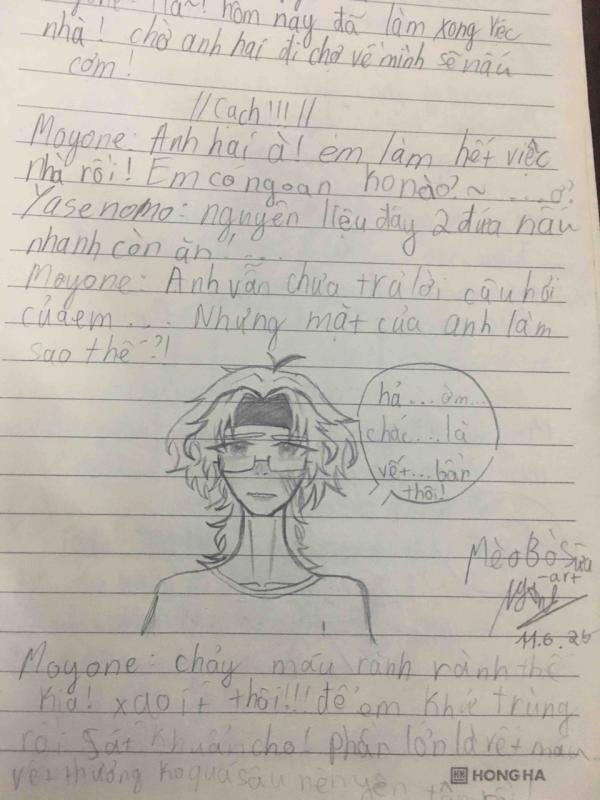 Hả~! hôm nay đã làm xong việc
nhà! chờ anh hai đi chợ về mình sẽ nấu
cơm!
//Cạch!!!//
Moyone: Anh hai à! em làm hết việc
nhà rồi! Em có ngoan ko nào?~ .....ơ?
Yasenomo: nguyên liệu đây 2 đứa nấu
nhanh còn ăn.....
Moyone: Anh vẫn chưa trả lời câu hỏi
của em... Nhưng mặt của anh làm
sao thế?!
hả...ờm...
chắc...là
vết...bẩn
thôi!
MèoBòSữa
-art
11.6.25
Moyone: chảy máu rành rành thế
kia! xạo ít thôi!!! để em khử trùng
rồi sát khuẩn cho! phần lớn là vết máu
vết thương ko quá sâu nên yên
HONG HA